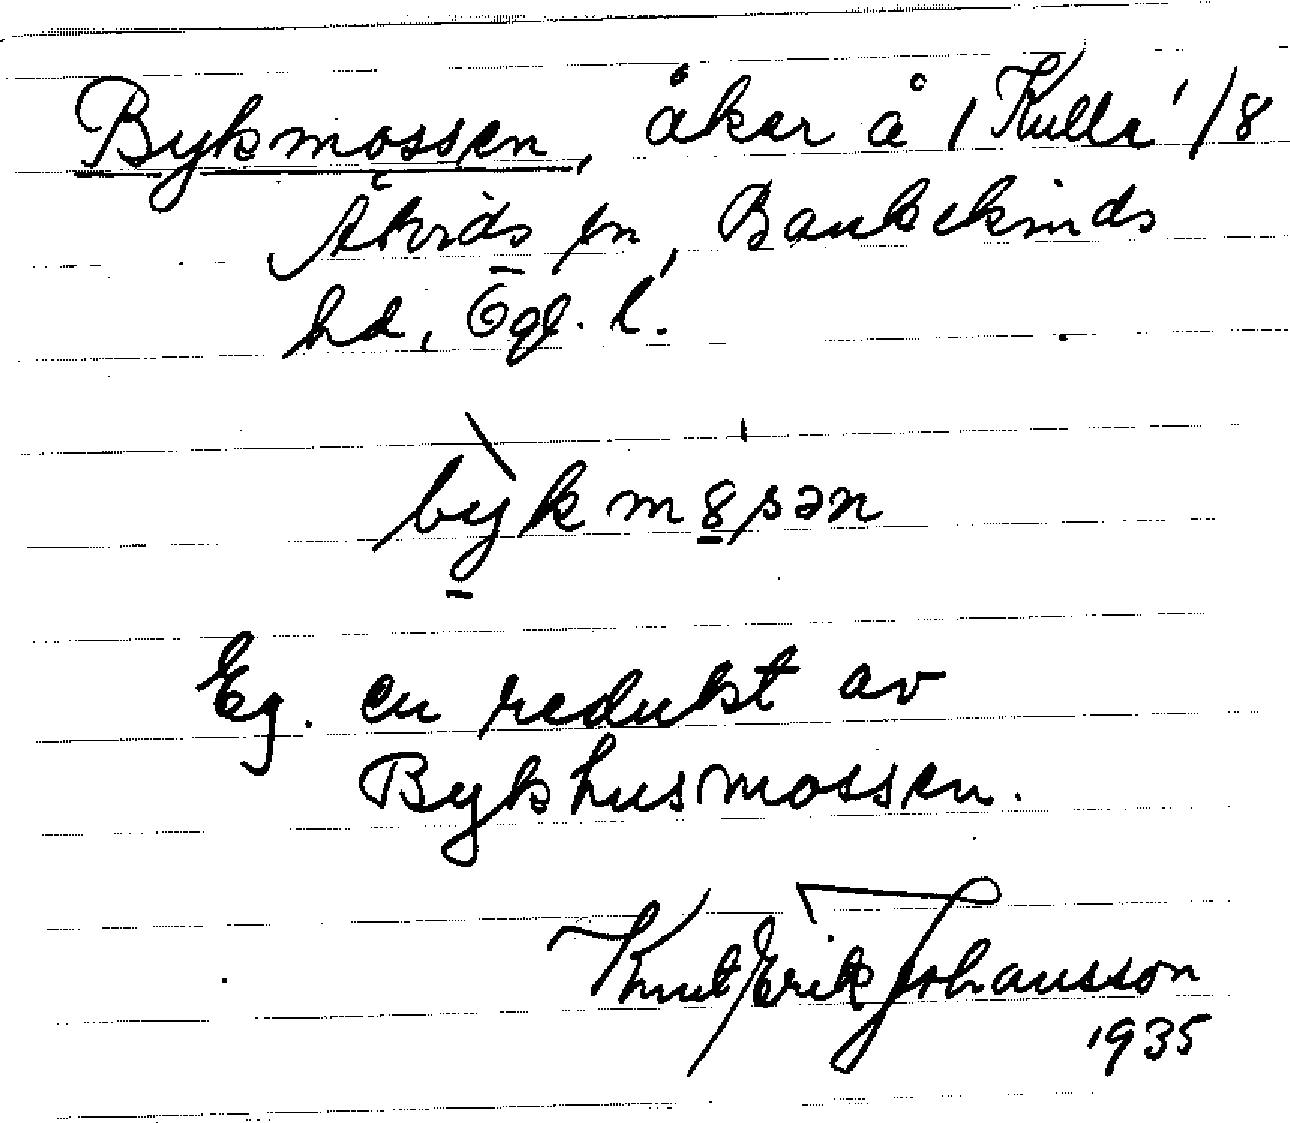 Bykmossen, åker å 1 Kulla 1/8
Åtvids sn, Bankekinds
hd, Ögl. l.
bykm8sən
Eg. en redukt av
Bykhusmossen.
Knut Erik Johansson
1935